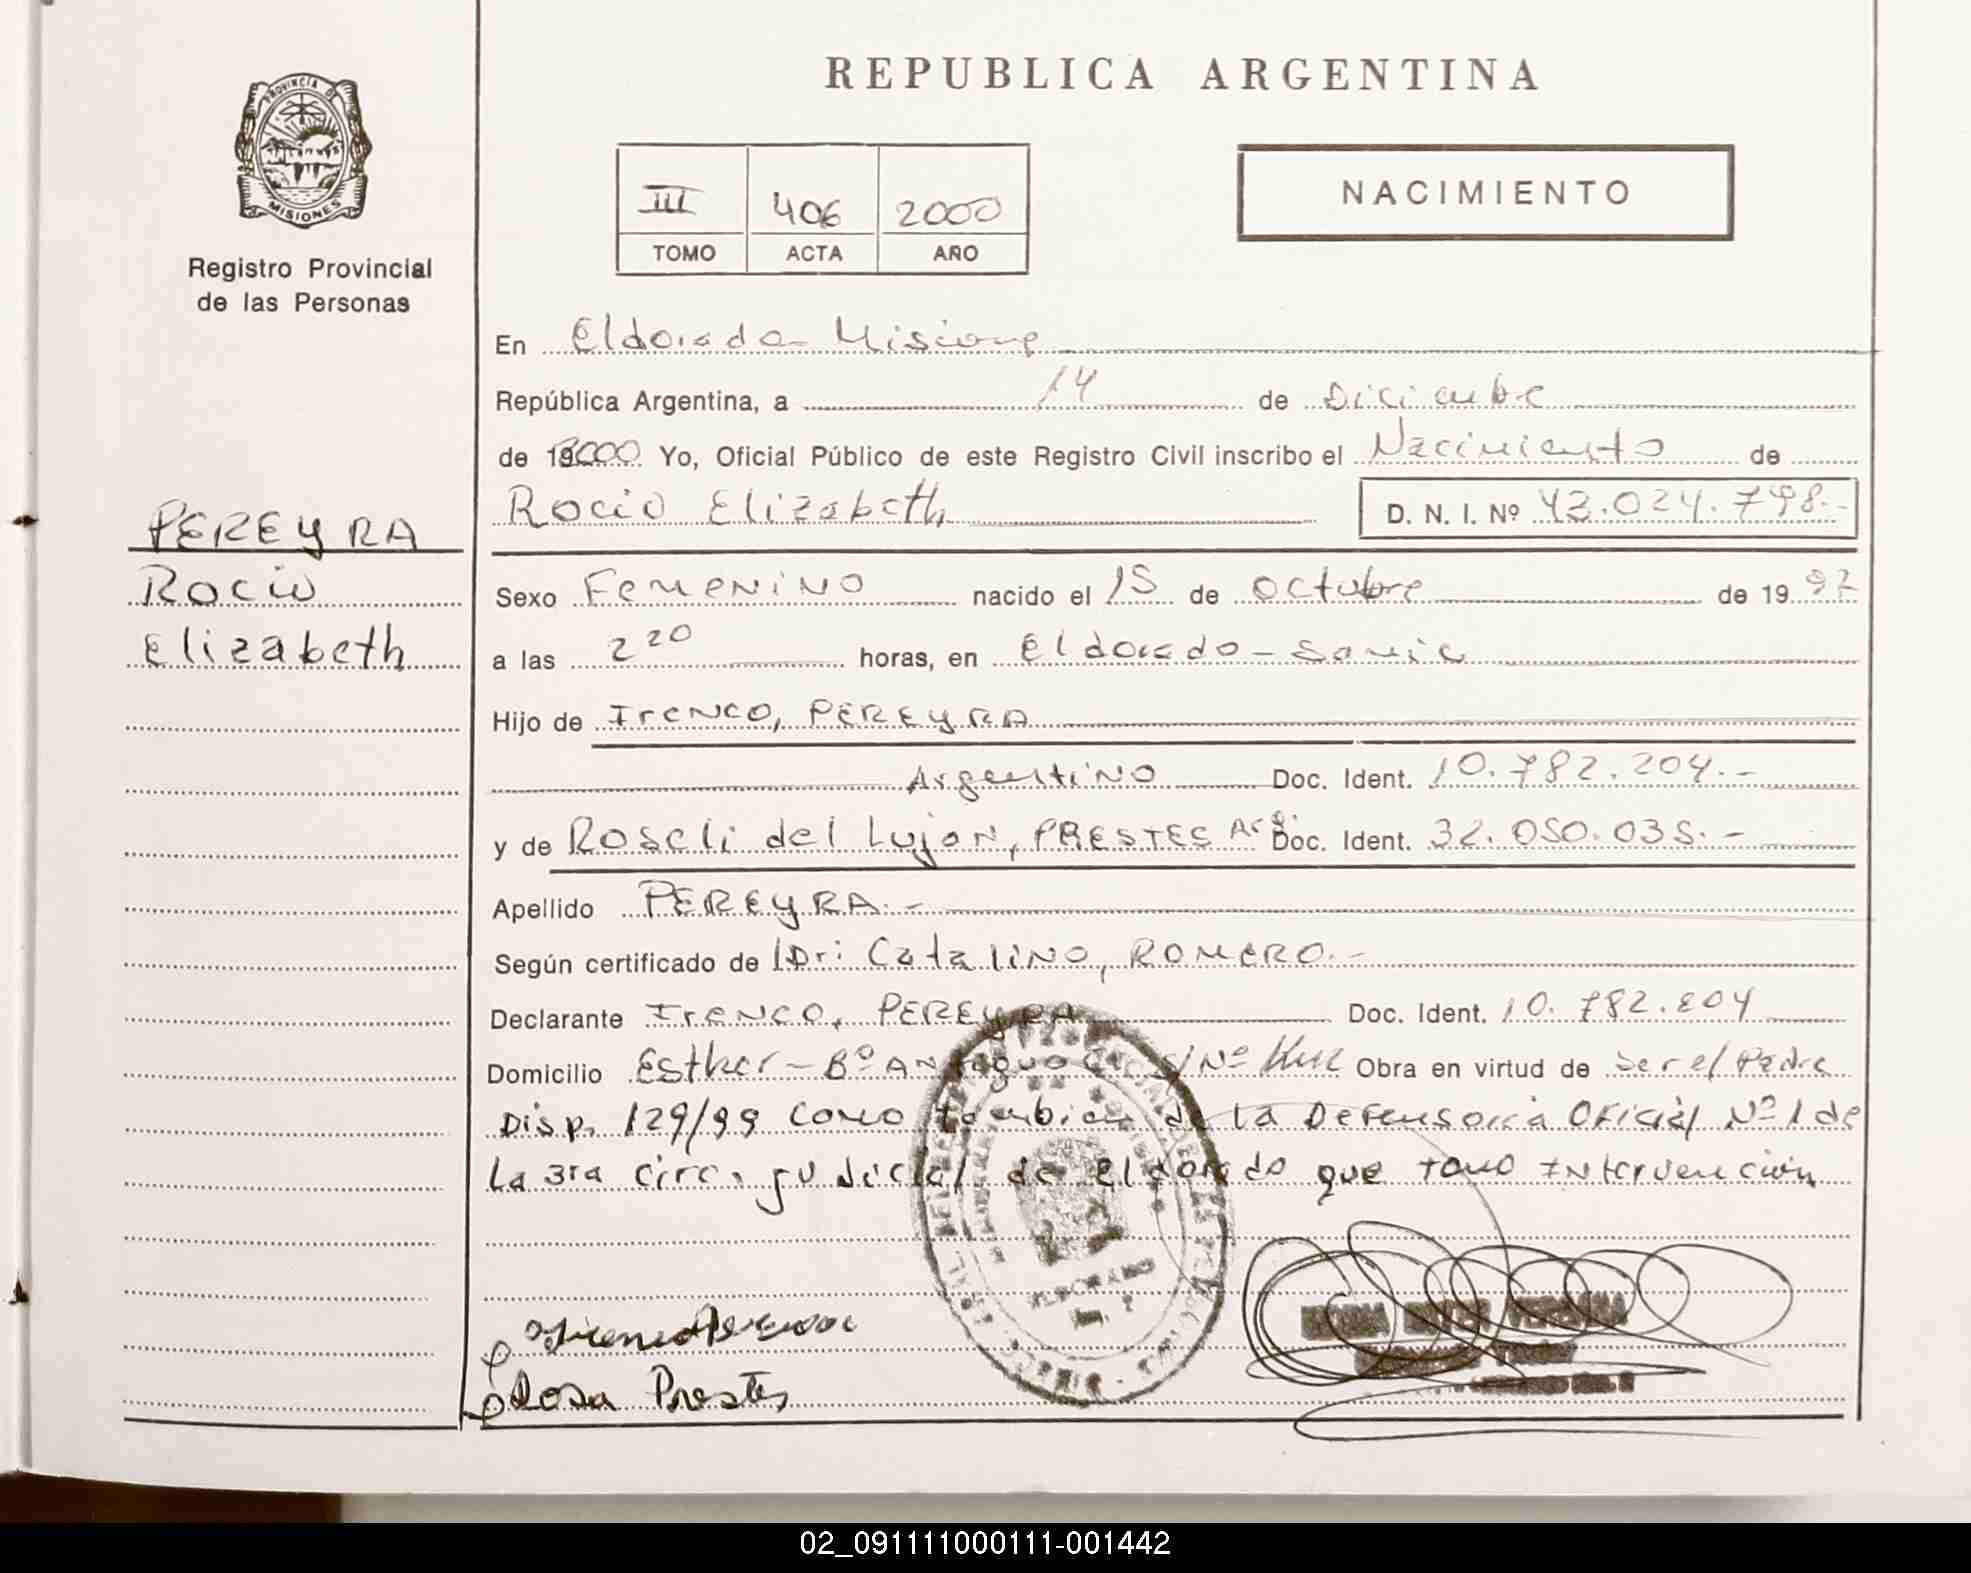 REPUBLICA ARGENTINA
PROVINCIA DE
MISIONES
Registro Provincial
de las Personas
III 406 2000
TOMO ACTA AÑO
NACIMIENTO
En Eldorado Misiones
República Argentina, a 14 de Diciembre
de 2000 Yo, Oficial Público de este Registro Civil inscribo el Nacimiento de
Rocio Elizabeth D. N. I. Nº 43.024.798.-
PEREYRA
Rocio
Elizabeth
Sexo Femenino nacido el 15 de Octubre de 19 97
a las 2 20 horas, en Eldorado - Samic
Hijo de Ireneo, PEREYRA
Argentino Doc. Ident. 10.782.204.-
y de Roseli del Lujan, PRESTES Arg. Doc. Ident. 32.050.035.-
Apellido PEREYRA.-
Según certificado de Dr: Catalino, ROMERO.-
Declarante Ireneo, PEREYRA Doc. Ident. 10.782.204
Domicilio Esther - Bº ANtiguo S/Nº Obra en virtud de ser el Padre
Disp. 129/99 como tambien de la Defensoria Oficial Nº 1 de
La 3ra Circ. Judicial de Eldorado que tomo Intervencion
Rosa Prestes
02_091111000111-001442